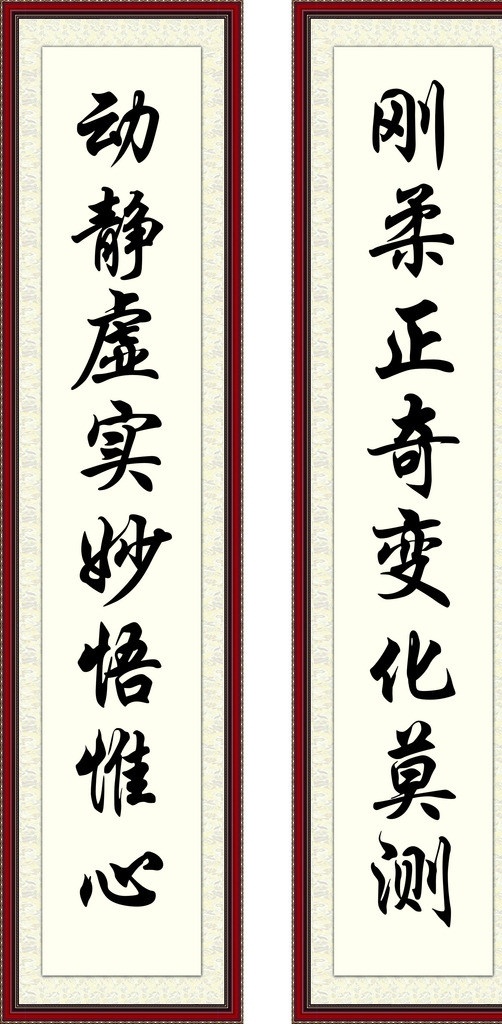 刚柔正奇变化莫测
动静虚实妙悟惟心